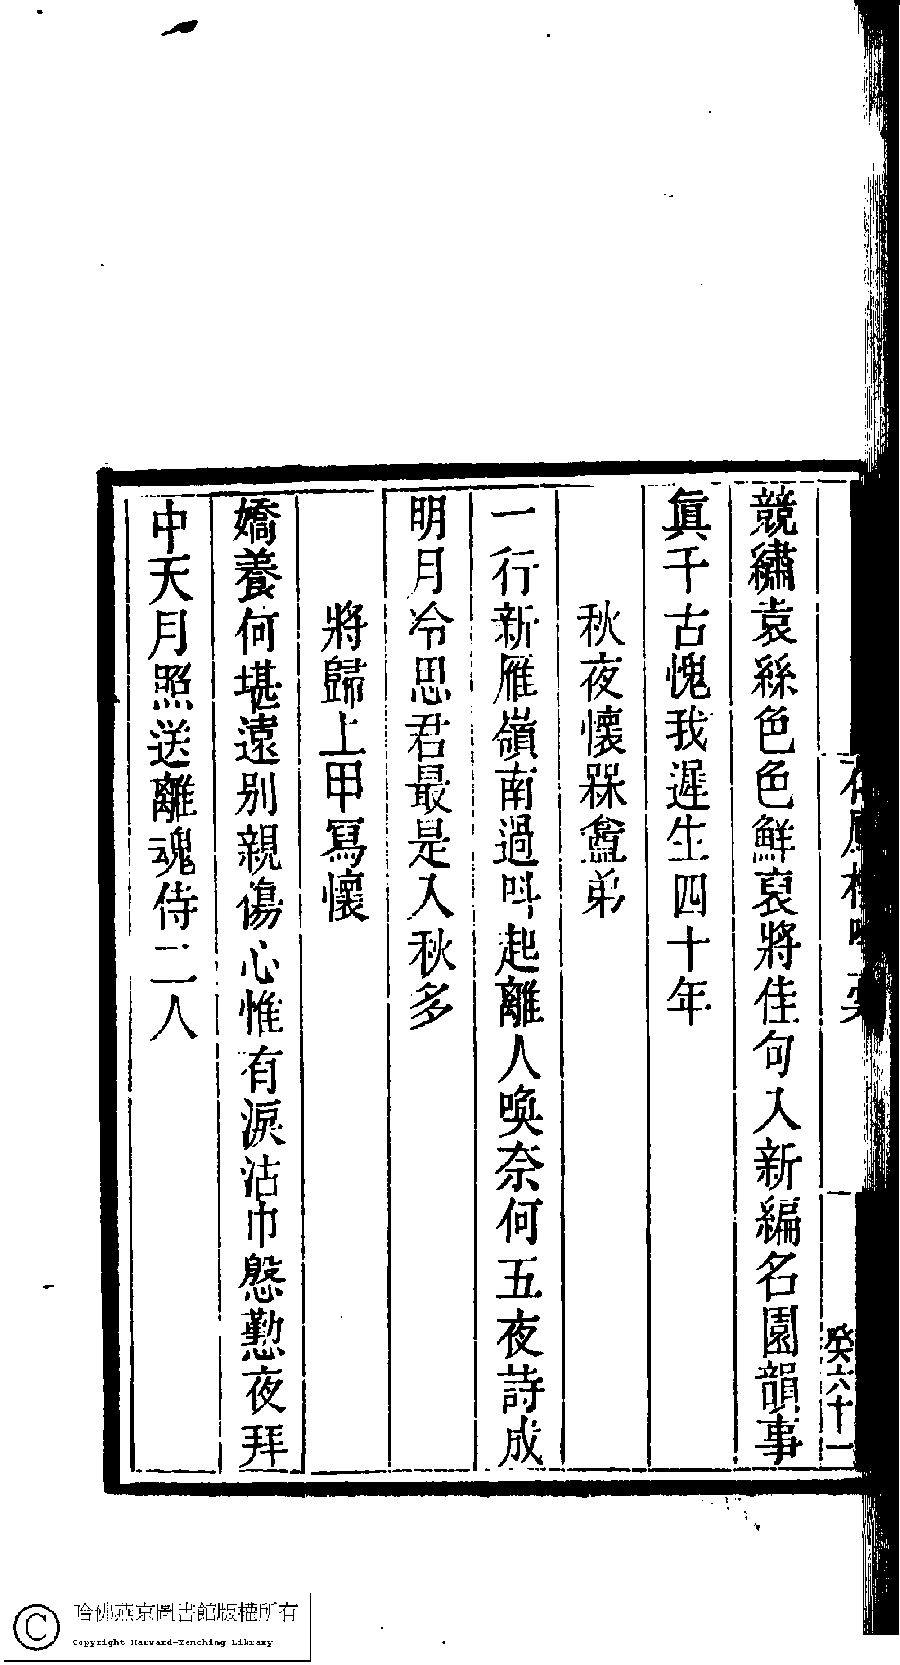 競繡袁絲色色鮮裒將佳句入新編名園韻事
眞千古愧我遲生四十年
秋夜懷槑盦弟
一行新雁嶺南過呌起離人喚奈何五夜詩成
明月冷思君最是入秋多
將歸上甲寫懷
嬌養何堪遠别親傷心惟有淚沾巾慇懃夜拜
中天月照送離魂侍二人
癸六十一
哈佛燕京圖書館版權所有
Copyright Harvard-Yenching Library